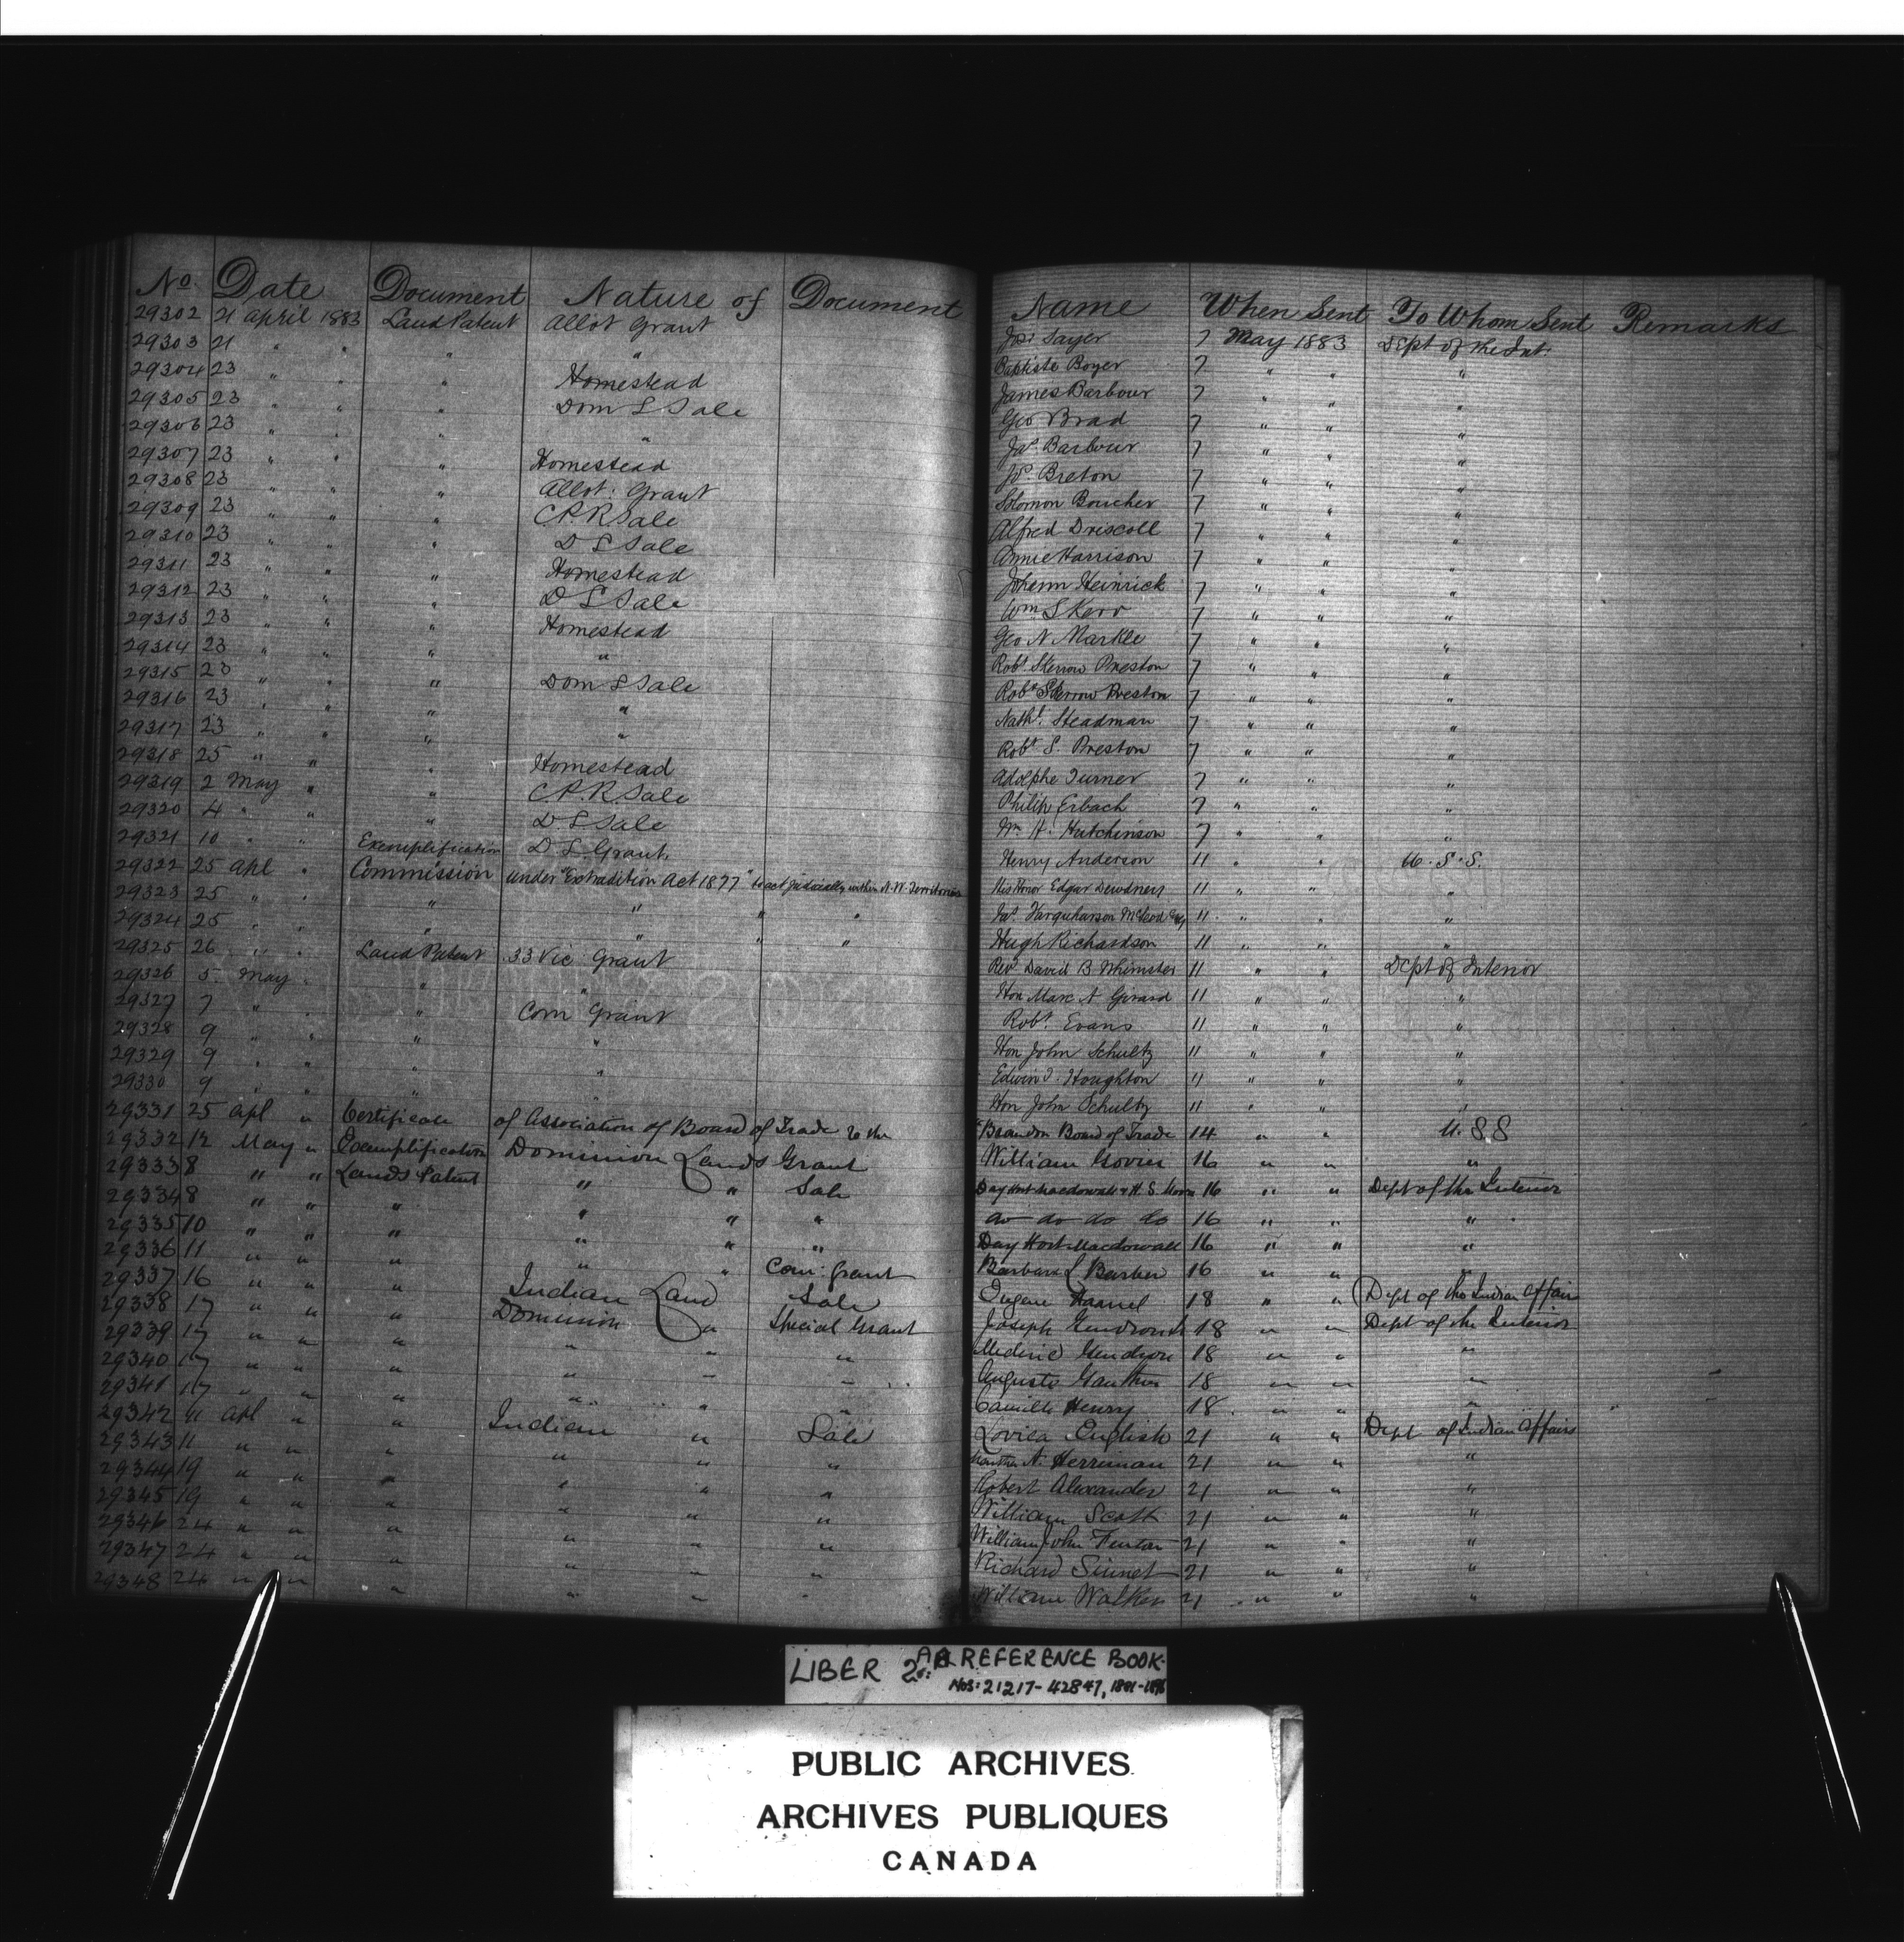 No. Date Document Nature of Document Name When Sent To Whom Sent Remarks
29302 21 April 1883 Land Patent Allot Grant Jos: Sayer 7 May 1883 Dept of the Int.
29303 21 " " " " Baptiste Boyer 7 " " "
29304 23 " " " Homestead James Barbour 7 " " "
29305 23 " " " Dom L Sale Geo Brad 7 " " "
29306 23 " " " " Jas Barbour 7 " " "
29307 23 " " " Homestead Jos. Breton 7 " " "
29308 23 " " " Allot: Grant Solomon Boucher 7 " " "
29309 23 " " " C.P.R Sale Alfred Driscoll 7 " " "
29310 23 " " " D L Sale Annie Harrison 7 " " "
29311 23 " " " Homestead Johann Heinrick 7 " " "
29312 23 " " " D L Sale Wm S Kerr 7 " " "
29313 23 " " " Homestead Geo N Markle 7 " " "
29314 23 " " " " Robt Skerrow Preston 7 " " "
29315 23 " " " Dom L Sale Robt Skerrow Preston 7 " " "
29316 23 " " " " Nathl. Steadman 7 " " "
29317 23 " " " " Robt S. Preston 7 " " "
29318 25 " " " Homestead Adolphe Turner 7 " " "
29319 2 May " " C.P.R Sale Philip Erbach 7 " " "
29320 4 " " " D. L Sale Wm H. Hutchinson 7 " " "
29321 10 " " Exemplification D L. Grant. Henry Anderson 11 " " U.S.S.
29322 25 Apl " Commission under "Extradition Act 1877" to act judicially within N.W. Territories His Honor Edgar Dewdney 11 " " "
29323 25 " " " " " " Jas. Farquharson McLeod Esq 11 " " "
29324 25 " " " " " " Hugh Richardson 11 " " "
29325 26 " " Land Patent 33 Vic Grant Revd David B Whimster 11 " " Dept of Interior
29326 5 May " " " Hon Marc A Girard 11 " " "
29327 7 " " " Com Grant Robt. Evans 11 " " "
29328 9 " " " " Hon John Schultz 11 " " "
29329 9 " " " " Edwin J. Houghton 11 " " "
29330 9 " " " " Hon John Schultz 11 " " "
29331 25 Apl " Certificate of Association of Board of Trade to the "Brandon Board of Trade 14 " " U.S S
29332 12 May " Exemplification Dominion Lands Grant William Govier 16 " " "
29333 8 " " Lands Patent " " Sale Day Hort Macdowall & H. S. Moore 16 " " Dept of the Interior
29334 8 " " " " " " do do do do 16 " " "
29335 10 " " " " " " Day Hort Macdowall 16 " " "
29336 11 " " " " " Com: Grant Barbara L Barber 16 " " "
29337 16 " " " Indian Land Sale Eugene Haanel 18 " " Dept of the Indian Affair
29338 17 " " " Dominion " Special Grant Joseph 18 " " Dept of the Interior
29339 17 " " " " " " Mederic Gendron 18 " " "
29340 17 " " " " " " Auguste Gauthier 18 " " "
29341 17 " " " " " " Camille Henry 18 " " "
29342 11 Apl " " Indian " Sale Lovica English 21 " " Dept of Indian Affairs
29343 11 " " " " " " Martha N. Herriman 21 " " "
29344 19 " " " " " " Robert Alexander 21 " " "
29345 19 " " " " " " William Scott 21 " " "
29346 24 " " " " " " William John Fenton 21 " " "
29347 24 " " " " " " Richard Sinnet 21 " " "
29348 24 " " " " " " William Walker 21 " " "
LIBER 2A: REFERENCE BOOK
Nos: 21217-42847, 1881-1896
PUBLIC ARCHIVES
ARCHIVES PUBLIQUES
CANADA